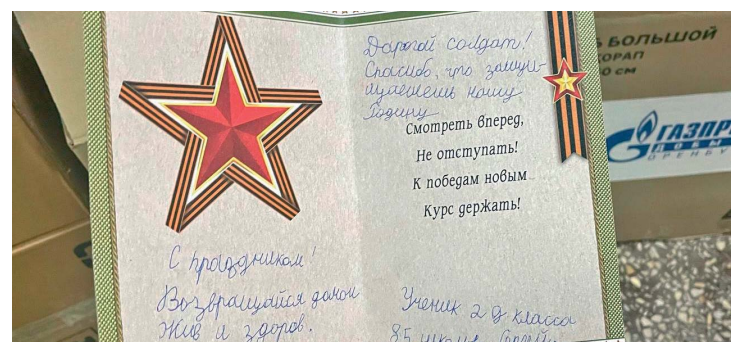 Дорогой солдат!
Спасибо, что защи-
щаешь нашу
Родину
Смотреть вперед,
Не отступать!
К победам новым
Курс держать!
С праздником!
Возвращайся домой
Жив и здоров.
Ученик 2 д класса
85 школы
БОЛЬШОЙ
КОРАП
0 см
ГАЗПР
ДОБЫ
ОРЕНБУ